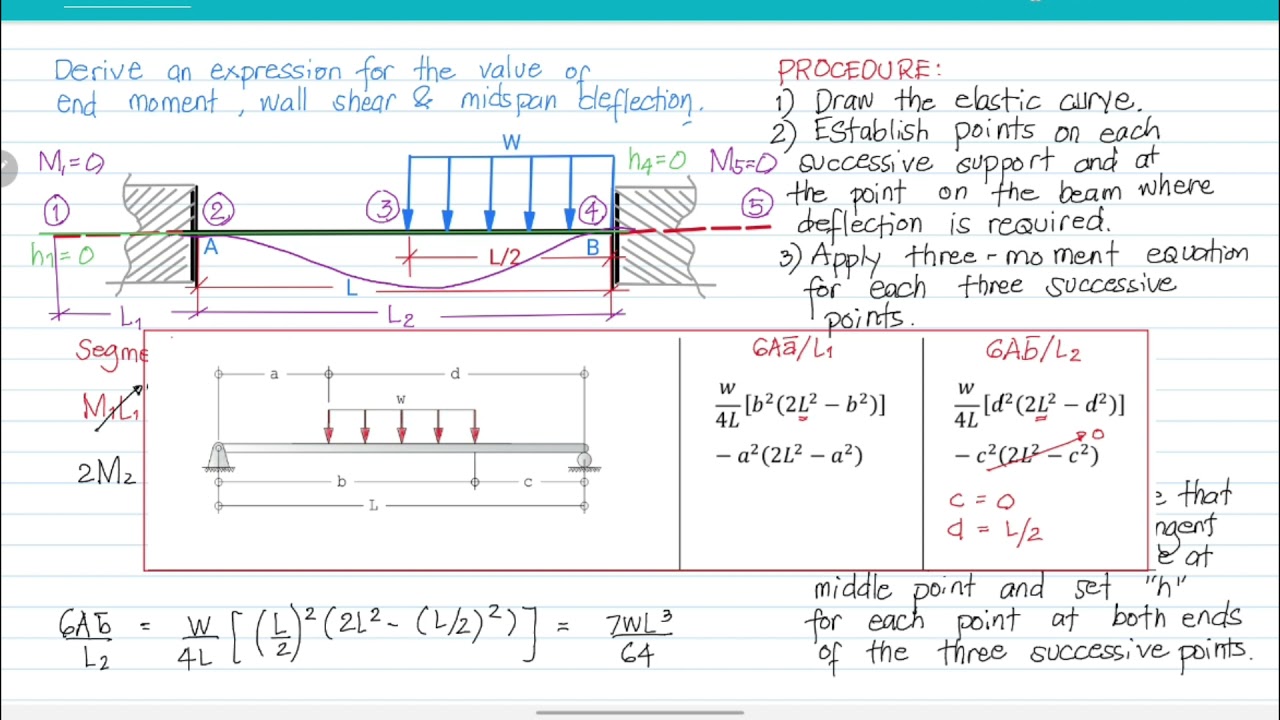 Derive an expression for the value of
end moment, wall shear & midspan deflection.
PROCEDURE:
1) Draw the elastic curve.
2) Establish points on each
successive support and at
the point on the beam where
deflection is required.
3) Apply three-moment equation
for each three successive
points.
W
M₁=0
h₄=0
M₅=0
① ② ③ ④ ⑤
h₁=0
A
B
L/2
L
L₁
L₂
Segme
M₁L₁
2M₂
a
d
w
b
c
L
6Aā/L₁
w/4L [b²(2L² − b²)]
− a²(2L² − a²)
6Ab̄/L₂
w/4L [d²(2L² − d²)]
− c²(2L² − c²)
0
c = 0
d = L/2
e that
ngent
e at
middle point and set "h"
for each point at both ends
of the three successive points.
6Ab̄/L₂ = W/4L [(L/2)²(2L² − (L/2)²)] = 7WL³/64